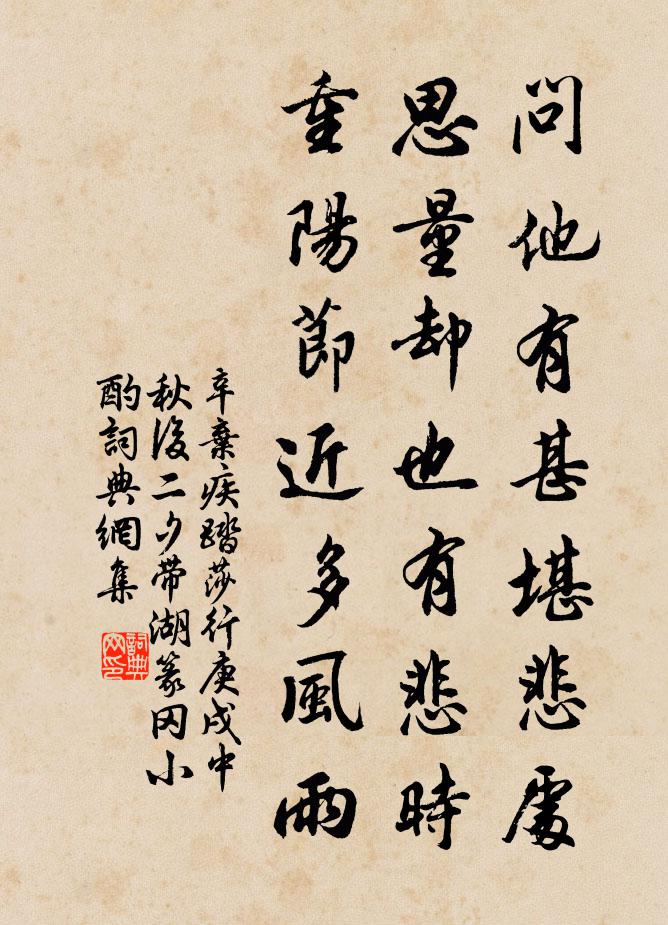 問他有甚堪悲處
思量却也有悲時
重陽節近多風雨
辛棄疾踏莎行庚戌中
秋後二夕帶湖篆冈小
酌詞典網集
詞典
网印